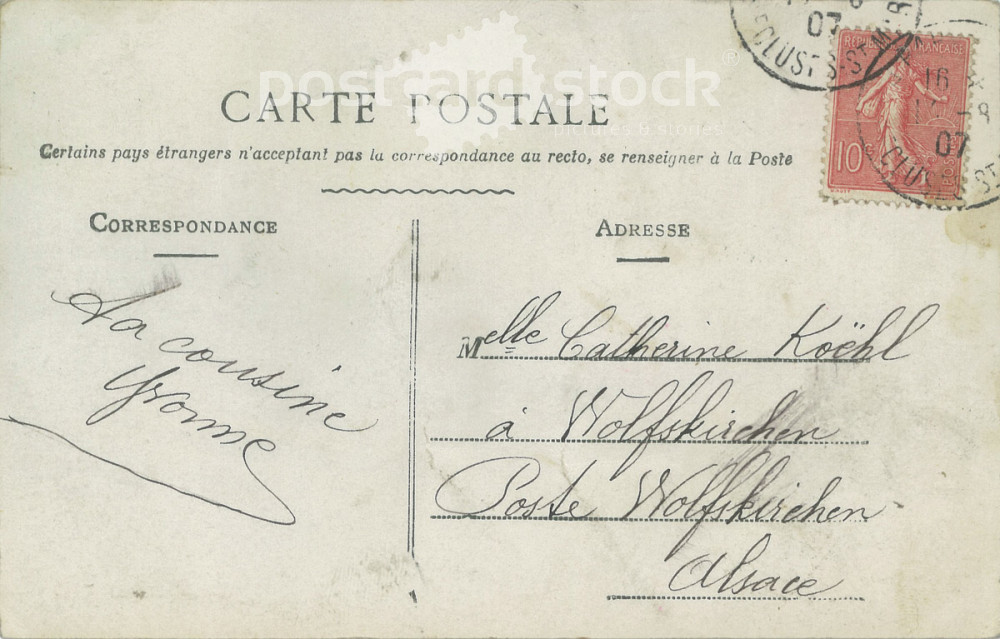 postcard stock
pictures & stories
CARTE POSTALE
Certains pays étrangers n'acceptant pas la correspondance au recto, se renseigner à la Poste
RÉPUBLIQUE FRANÇAISE
10 c
16
07
07
CORRESPONDANCE
Ta cousine
Yvonne
ADRESSE
Melle Catherine Koëhl
à Wolfskirchen
Poste Wolfskirchen
Alsace